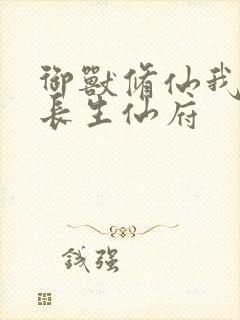 御獸脩仙我
長生仙府
錢强